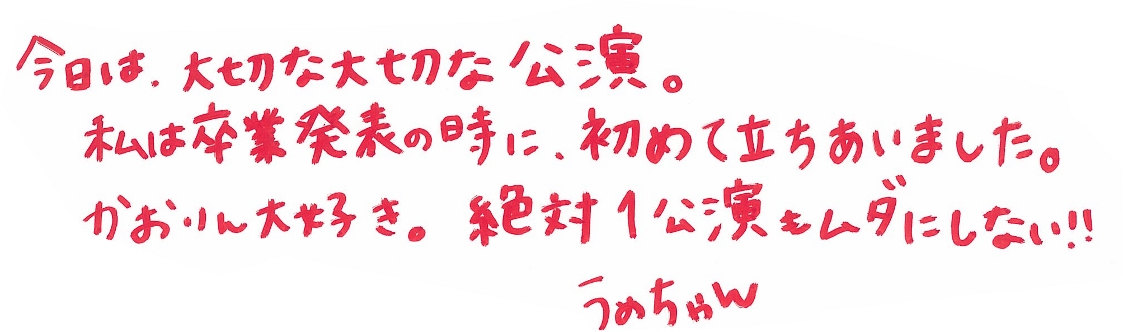 今日は、大切な大切な公演。
私は卒業発表の時に、初めて立ちあいました。
かおりん大好き。絶対1公演もムダにしない!!
うめちゃん